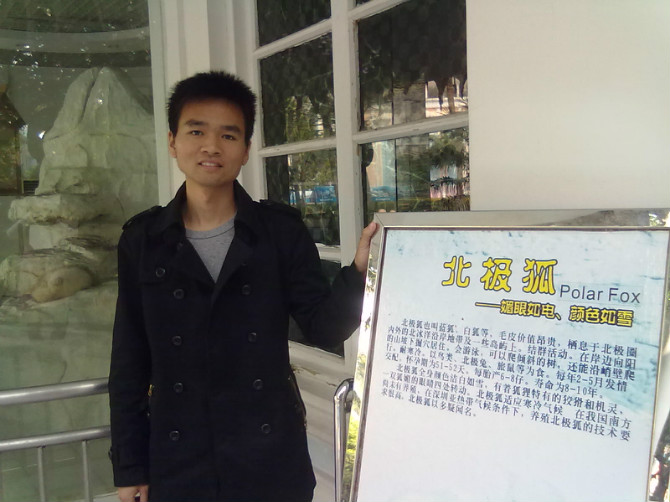 北极狐 Polar Fox
——媚眼如电、颜色如雪
北极狐也叫蓝狐、白狐等，毛皮价值昂贵，栖息于北极圈
内外的北冰洋沿岸地带及一些岛屿上。结群活动，在岸边向阳
的山坡下掘穴居住。会游泳，可以爬倾斜的树，还能沿峭壁爬
行，耐寒冷。以鸟类、北极兔、旅鼠等为食。每年2-5月发情
交配，怀孕期为51-52天，每胎产6-8仔。寿命为8-10年。
北极狐全身颜色洁白如雪，有着狐狸特有的狡猾和机灵，
一双狐媚的眼睛四处转动。北极狐适应寒冷气候，在我国南方
尚未有养殖。在深圳亚热带气候条件下，养殖北极狐的技术要
求很高，北极狐以多疑闻名。